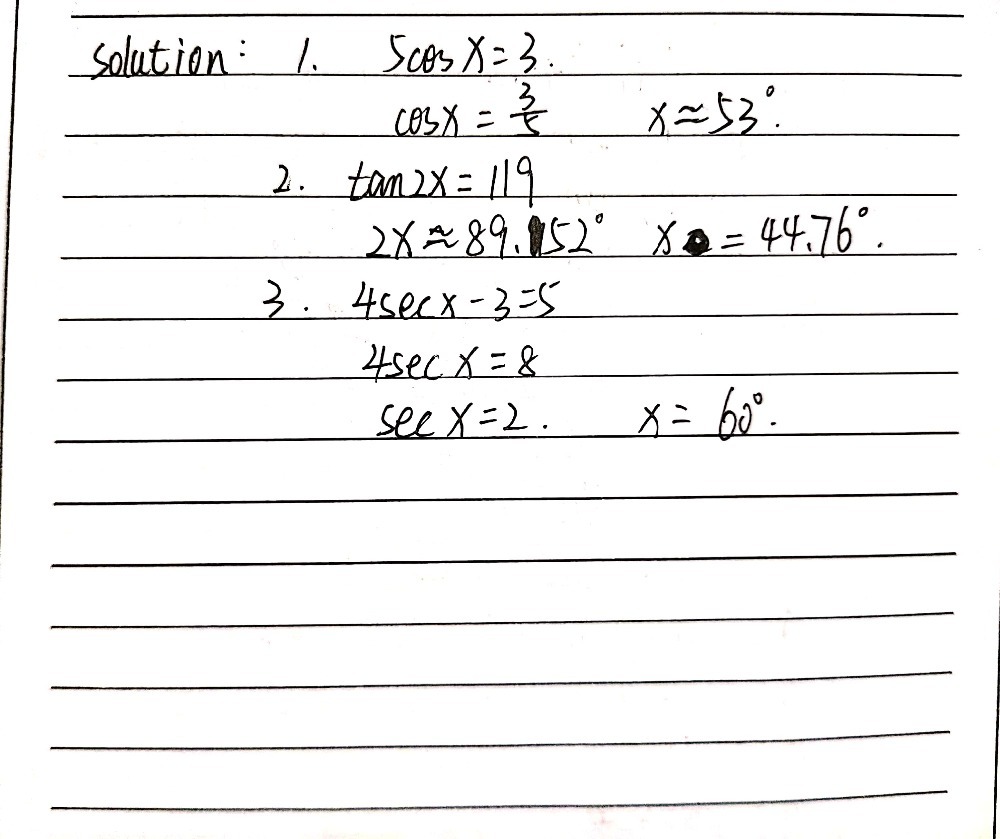 Solution: 1. 5cos x = 3.
cos x = 3/5 x ≈ 53°.
2. tan 2x = 119
2x ≈ 89.52° x = 44.76°.
3. 4sec x - 3 = 5
4sec x = 8
sec x = 2. x = 60°.